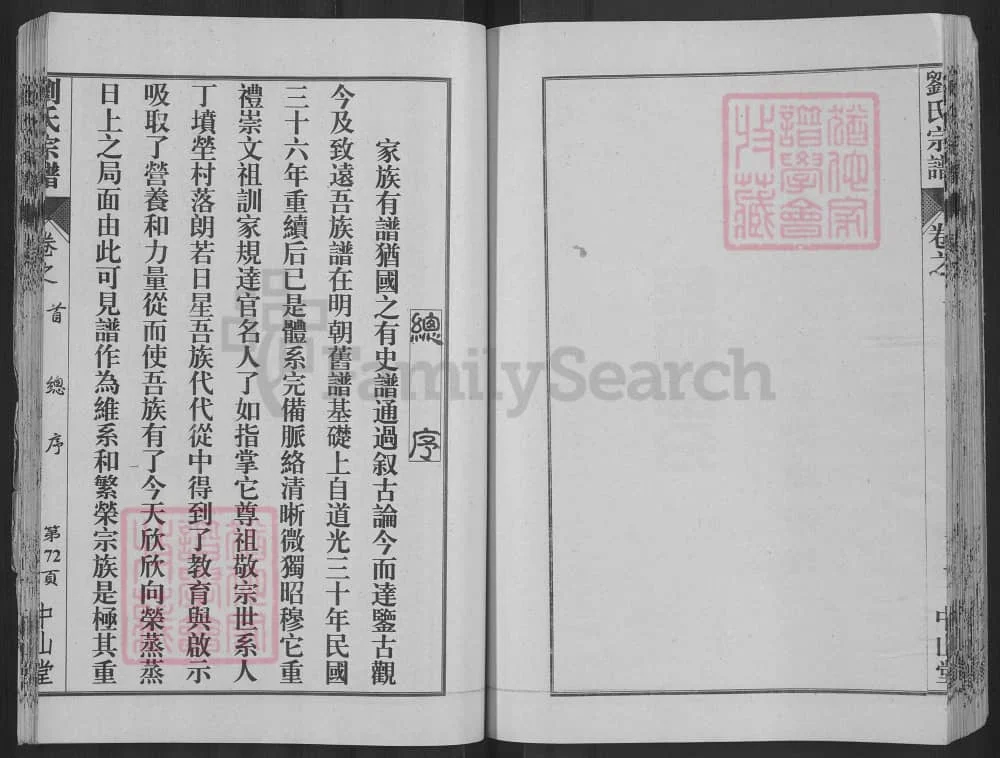 劉氏宗譜
卷之
中山堂
猶他家
譜學會
收藏
總序
家族有譜猶國之有史譜通過叙古論今而達鑒古觀
今及致遠吾族譜在明朝舊譜基礎上自道光三十年民國
三十六年重續后已是體系完備脈絡清晰微獨昭穆它重
禮崇文祖訓家規達官名人了如指掌它尊祖敬宗世系人
丁墳塋村落朗若日星吾族代代從中得到了教育與啟示
吸取了營養和力量從而使吾族有了今天欣欣向榮蒸蒸
日上之局面由此可見譜作為維系和繁榮宗族是極其重
劉氏宗譜
卷之首 總序 第72頁 中山堂
猶他家
譜學會
收藏
FamilySearch